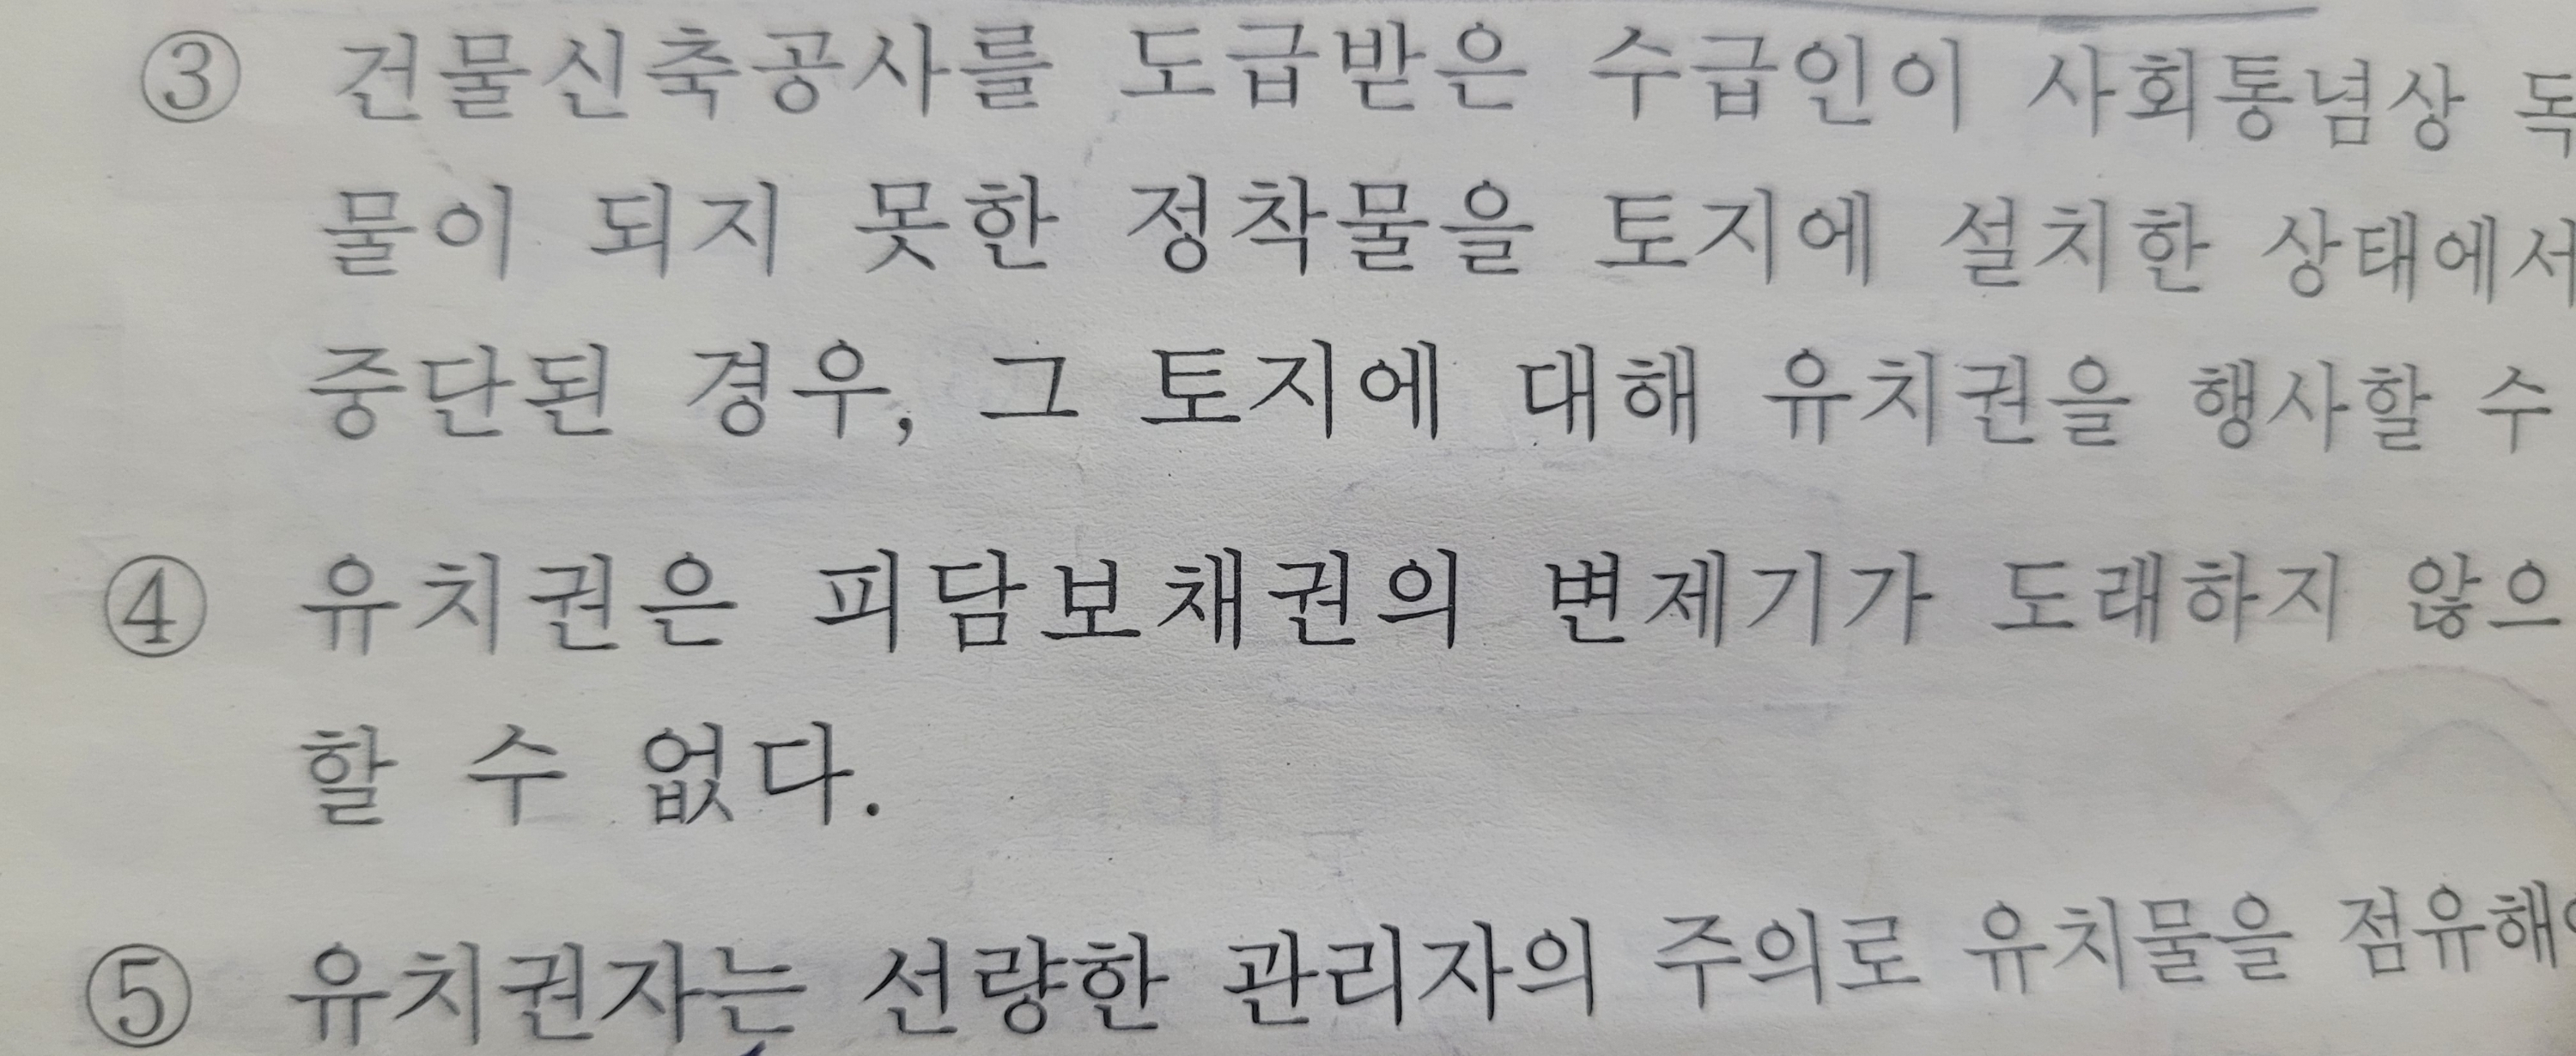 ③ 건물신축공사를 도급받은 수급인이 사회통념상 독
물이 되지 못한 정착물을 토지에 설치한 상태에서
중단된 경우, 그 토지에 대해 유치권을 행사할 수
④ 유치권은 피담보채권의 변제기가 도래하지 않으
할 수 없다.
⑤ 유치권자는 선량한 관리자의 주의로 유치물을 점유해